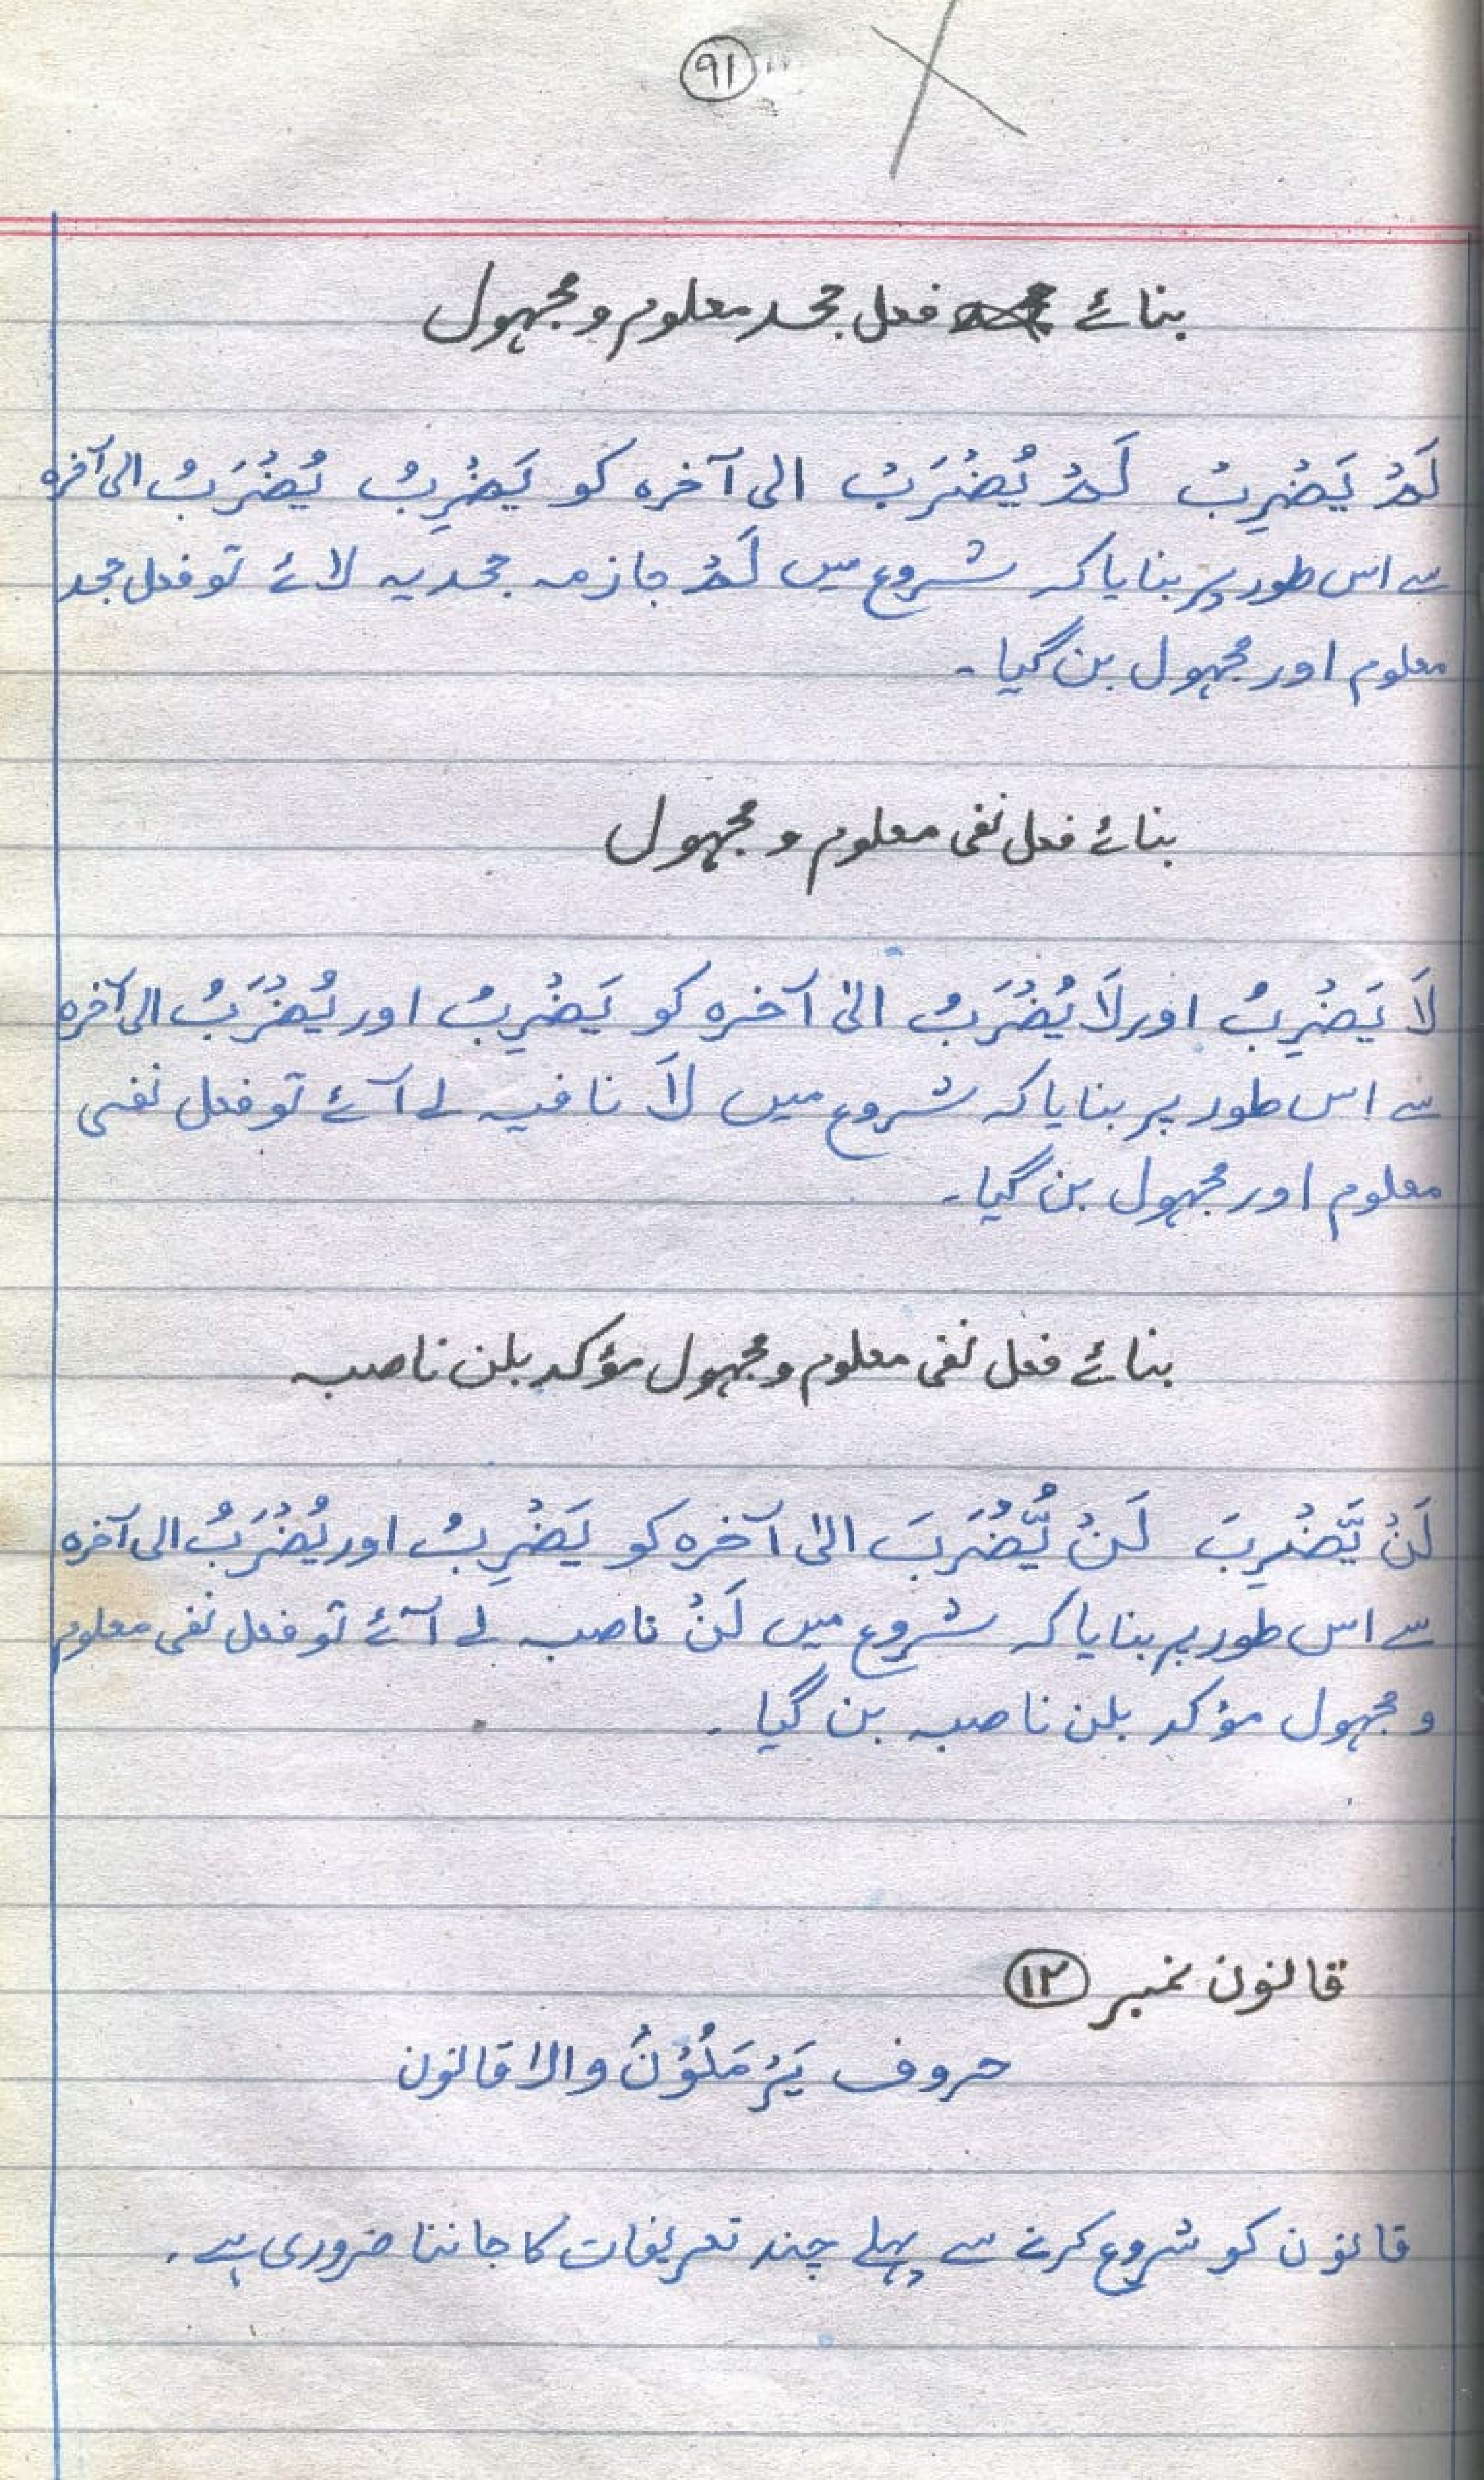 ۹۱
بنائے فعل جحد معلوم و مجہول
لَمْ يَضْرِبْ لَمْ يُضْرَبْ الی آخرہ کو يَضْرِبُ يُضْرَبُ الی آخرہ
سے اس طور پر بنایا کہ شروع میں لَمْ جازمہ جحدیہ لائے تو فعل جحد
معلوم اور مجہول بن گیا۔
بنائے فعل نفی معلوم و مجہول
لَا يَضْرِبُ اور لَا يُضْرَبُ الیٰ آخرہ کو يَضْرِبُ اور يُضْرَبُ الی آخرہ
سے اس طور پر بنایا کہ شروع میں لَا نافیہ لے آئے تو فعل نفی
معلوم اور مجہول بن گیا۔
بنائے فعل نفی معلوم و مجہول مؤکد بلن ناصبہ
لَنْ يَّضْرِبَ لَنْ يُّضْرَبَ الیٰ آخرہ کو يَضْرِبُ اور يُضْرَبُ الی آخرہ
سے اس طور پر بنایا کہ شروع میں لَنْ ناصبہ لے آئے تو فعل نفی معلوم
و مجہول مؤکد بلن ناصبہ بن گیا۔
قانون نمبر ۱۲
حروف يَرْمَلُوْنَ والا قانون
قانون کو شروع کرنے سے پہلے چند تعریفات کا جاننا ضروری ہے۔